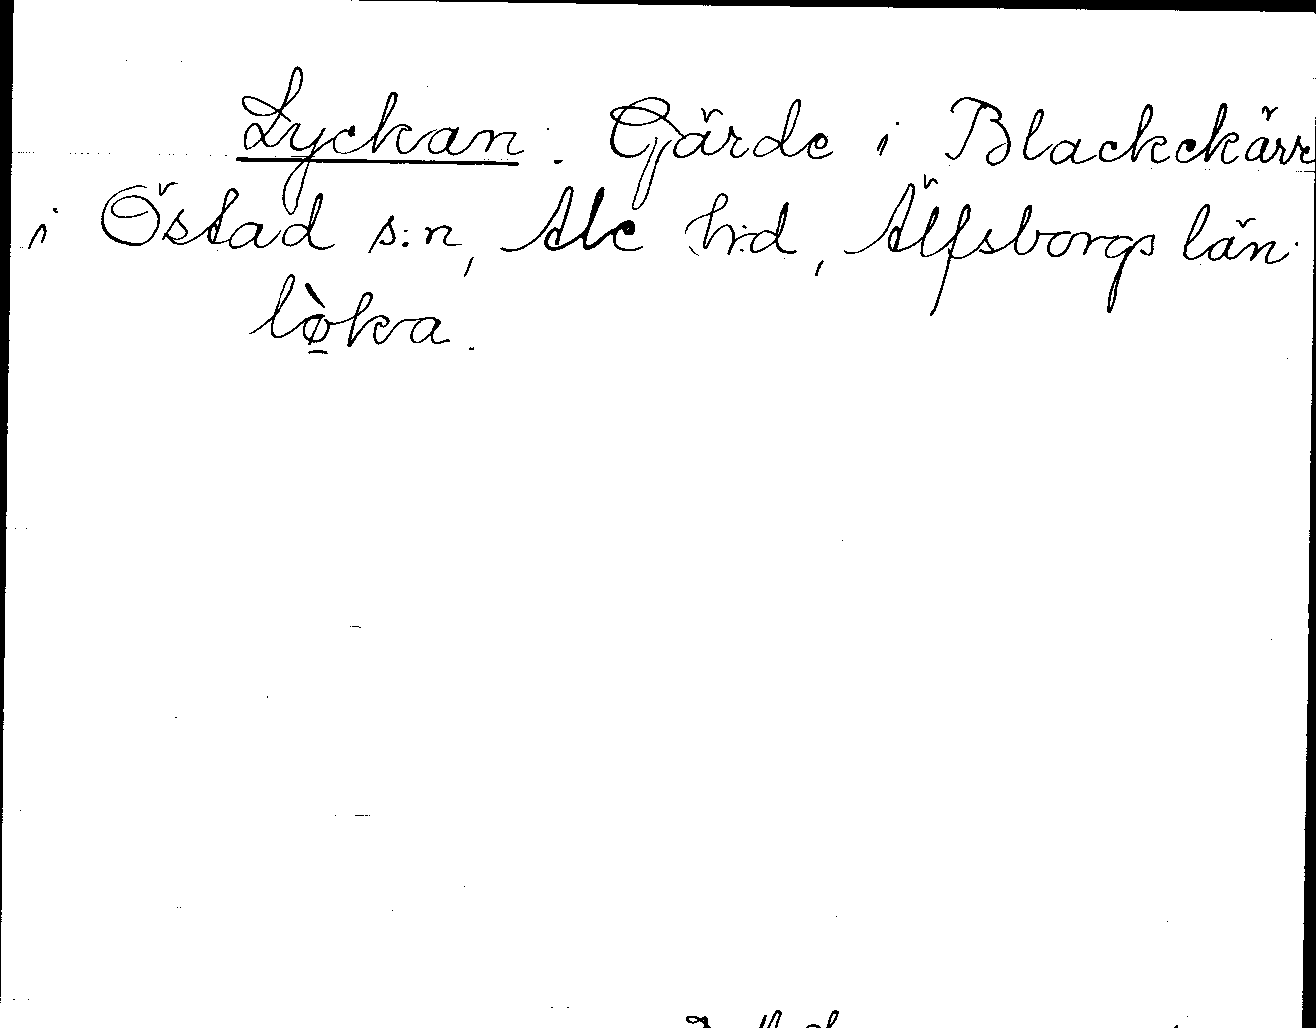 Lyckan. Gärde i Blackekärr
i Östad s:n, Ale h:d, Älfsborgs län.
lø̠̀ka.